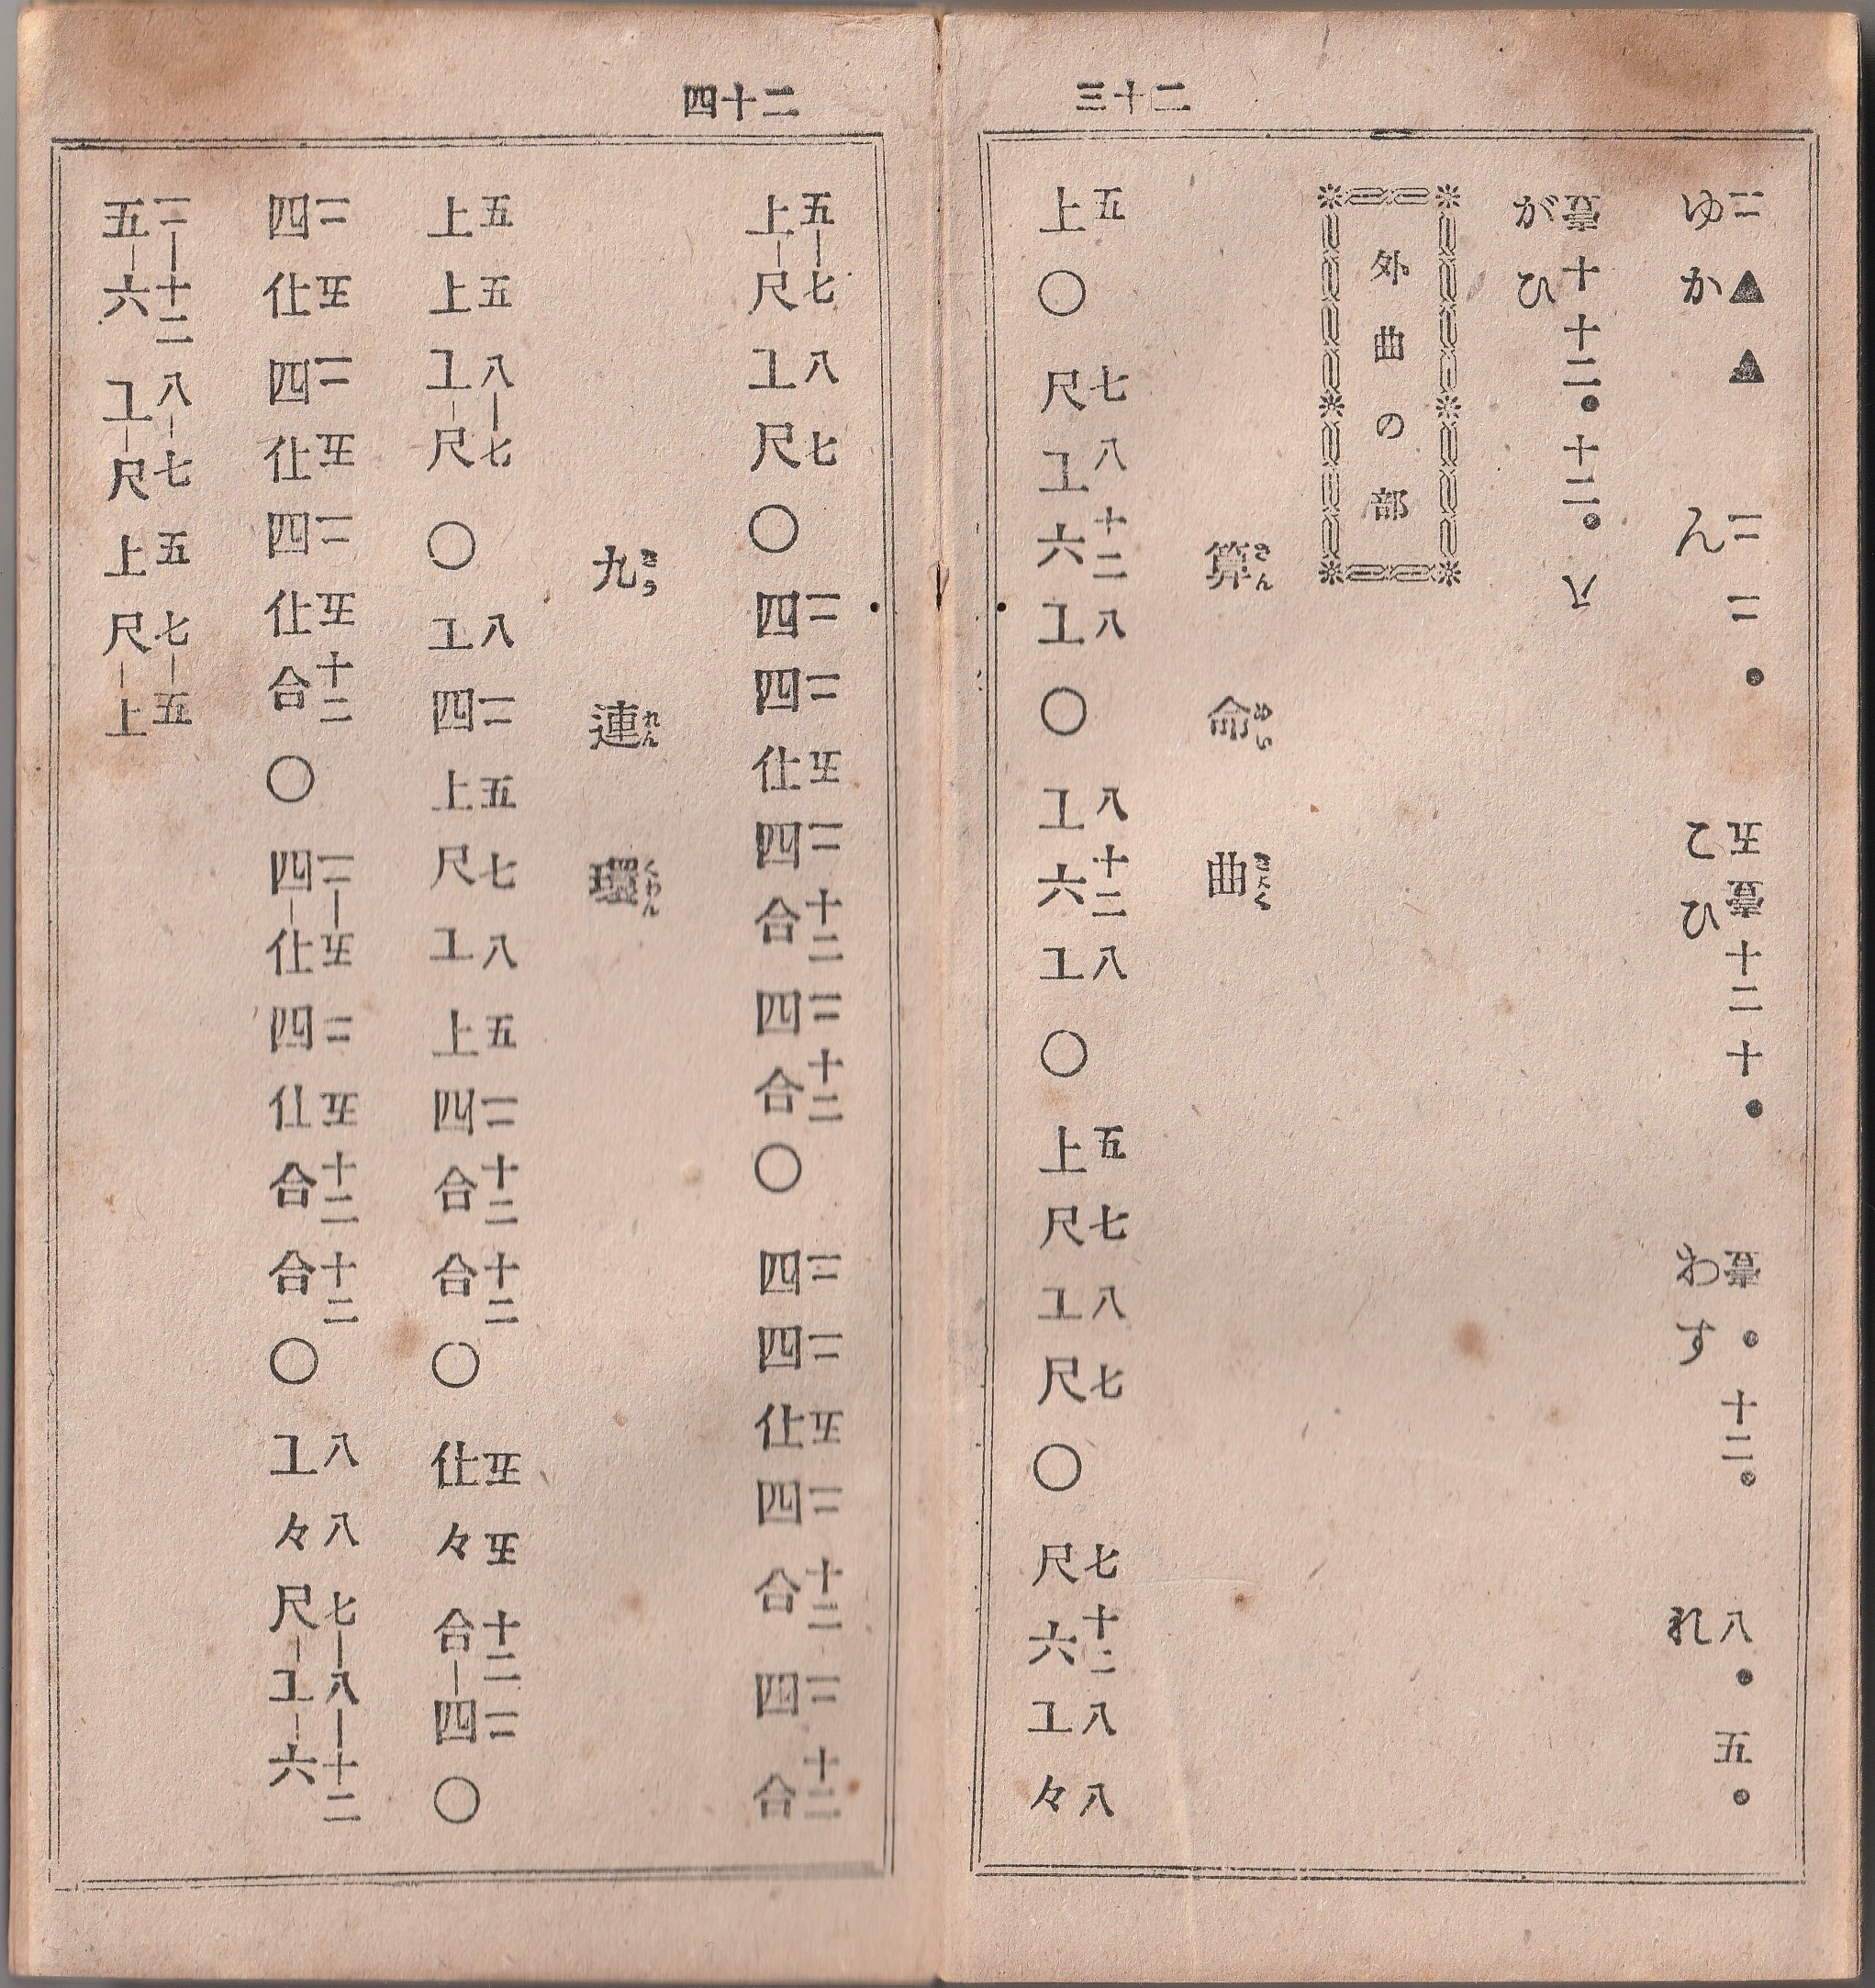 二十三
二▲▲二二●五壹十二十●壹●十二●八●五●
ゆかんこひわすれ
壹十十二●十二●八
がひ
外曲の部
さんめいきよく
算命曲
五七八十二八八十二八五七八七七十二八八
上〇尺工六工〇工六工〇上尺工尺〇尺六工々
二十四
五｜七八七二二五二十二二十二二二五二十二二十二
上｜尺工尺〇四四仕四合四合〇四四仕四合四合
きうれんくわん
九連環
五五八｜七八二五七八五二十二十二五五十二二
上上工｜尺〇工四上尺工上四合合〇仕々合｜四〇
二五二五二五十二二｜五二五十二十二八八七｜八｜十二
四仕四仕四仕合〇四｜仕四仕合合〇工々尺｜工｜六
二｜十二八｜七五七｜五
五｜六工｜尺上尺｜上